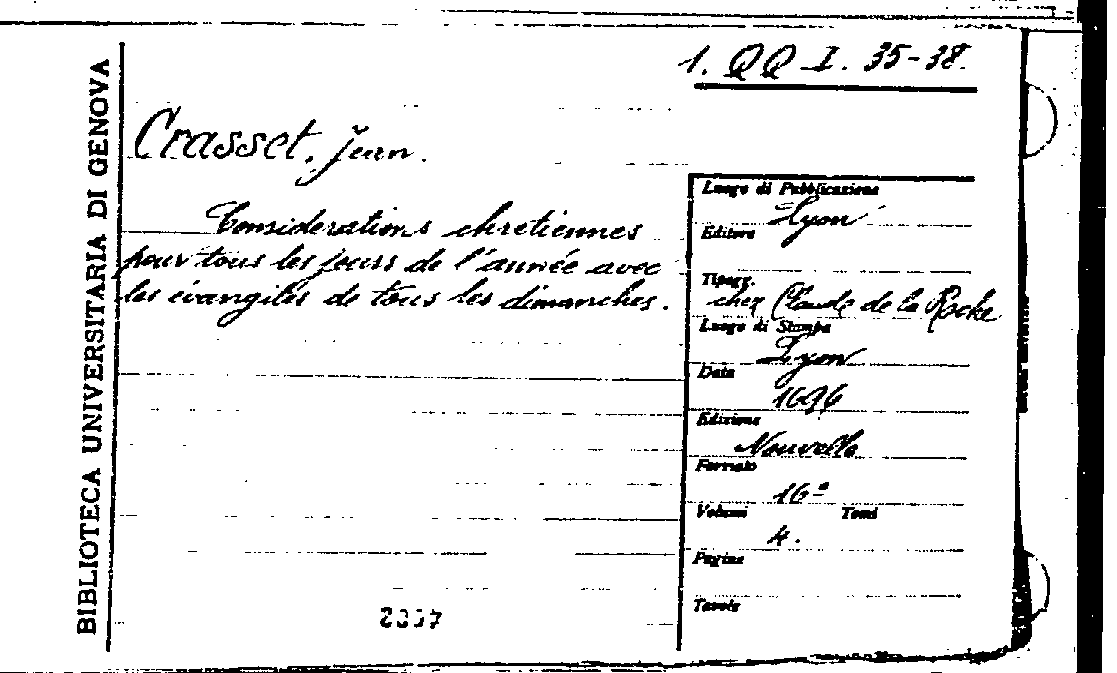 BIBLIOTECA UNIVERSITARIA DI GENOVA
1. QQ I. 35-38.
Crasset, Jean.
Considerations chretiennes
pour tous les jours de l'année avec
les évangiles de tous les dimanches.
Luogo di Pubblicazione
Lyon
Editore
Tipogr.
chez Claude de la Roche
Luogo di Stampa
Lyon
Data
1696
Edizione
Nouvelle
Formato
16º
Volumi Tomi
4.
Pagine
Tavole